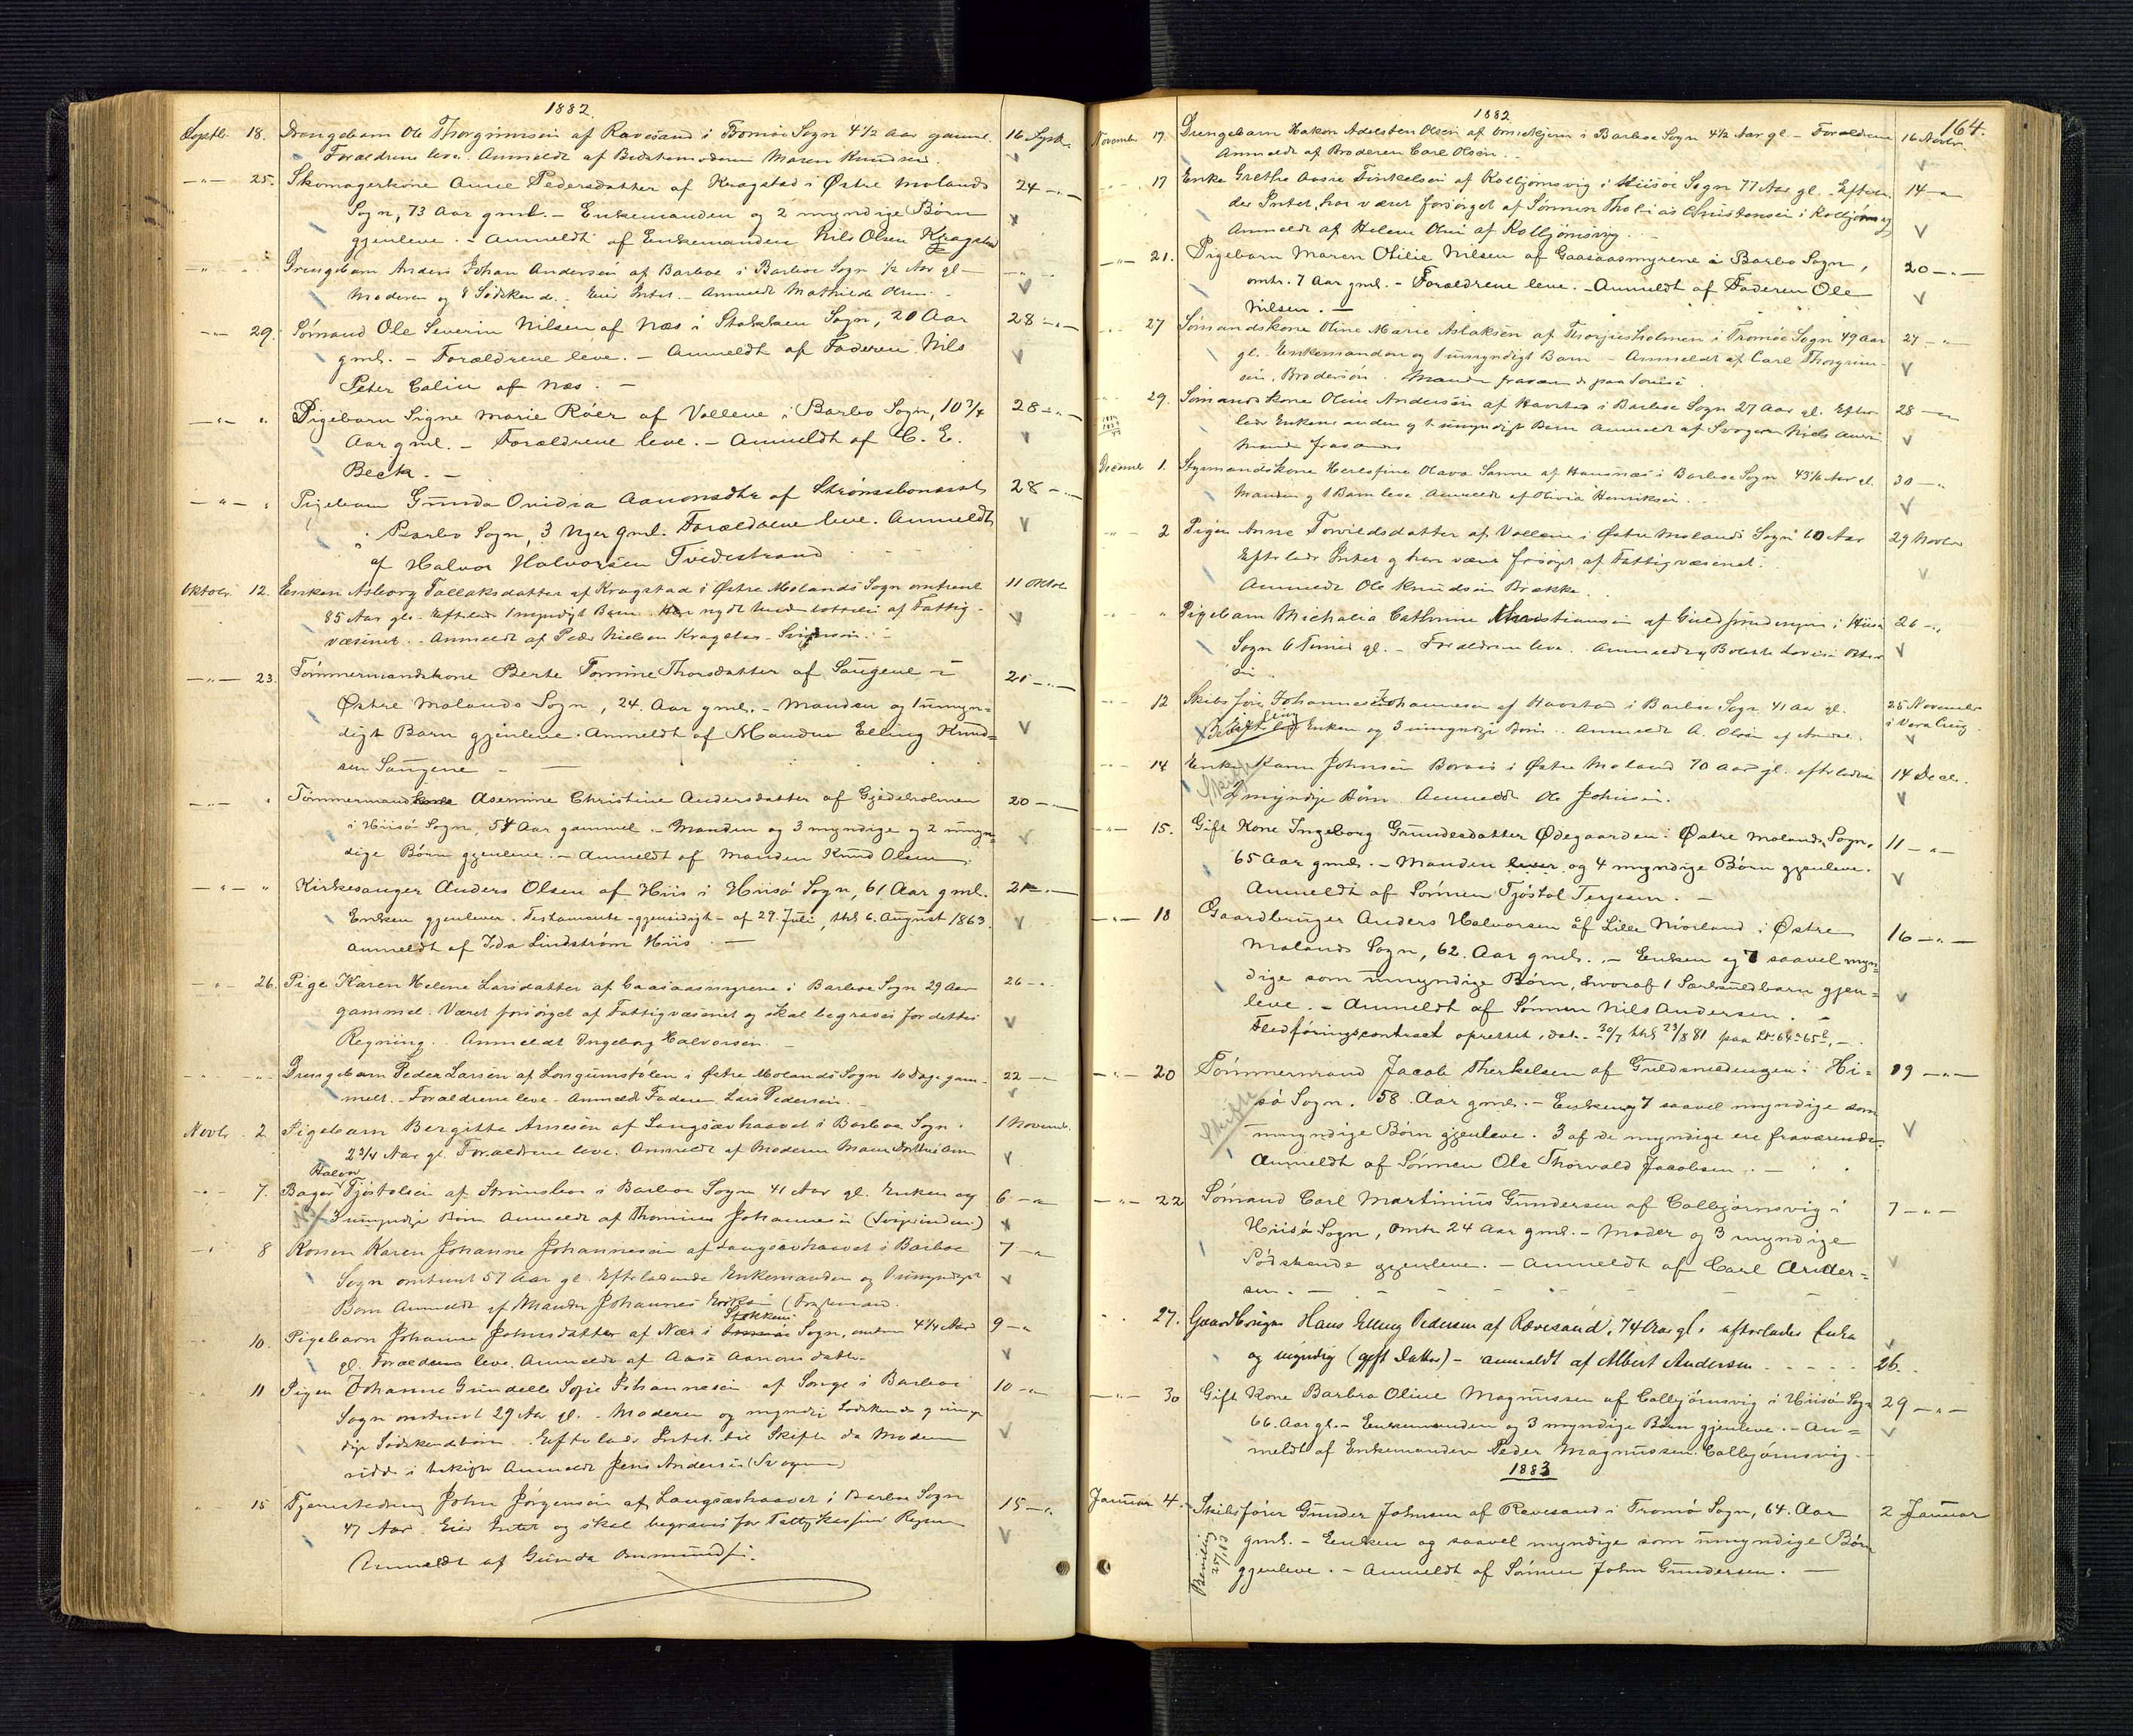 1882.
Septb. 18. Drengebarn Ole Thorgrimsen af Ravesand i Tromøe Sogn 4 1/2 Aar gammel. 16 Septb.
Forældrene leve. Anmeldt af Bedstemoderen Maren Knudsen.
—"— 25. Skomagerkone Anne Pedersdatter af Kragstad i Østre Molands 24 —"—
Sogn, 73 Aar gml. – Enkemanden og 2 myndige Børn
gjenleve. – Anmeldt af Enkemanden Nils Olsen Kragstad
—"— " Drengebarn Anders Johan Andersen af Barboe i Barboe Sogn 1/2 Aar gl. — —"—
Moderen og 8 Sødskende. Eier Intet. – Anmeldt Mathilde Olsen.
—"— 29. Sømand Ole Severin Nilsen af Næs i Stokken Sogn, 20 Aar 28 —"—
gml. – Forældrene leve. – Anmeldt af Faderen Nils
Peter Calin af Næs. –
—"— " Pigebarn Signe Marie Röer af Vollene i Barbo Sogn, 10 3/4 28 —"—
Aar gml. – Forældrene leve. – Anmeldt af C. E.
Beck. –
—"— " Pigebarn Gunda Ovidia Aanonsdtr af Strømsbonæset 28 —"—
i Barbo Sogn, 3 Uger gml. Forældrene leve. Anmeldt
af Halvor Halvorsen Tvedestrand
Oktobr. 12. Enken Asborg Tallaksdatter af Kragstad i Østre Molands Sogn omtrent 11 Oktob.
85 Aar gl. Efterlader 1 myndigt Barn. Har nydt Understøttelse af Fattig-
væsenet. Anmeldt af Peder Nielsen Kragstad – Svigersøn. –
—"— 23. Tømmermandskone Berte Tomine Thorsdatter af Saugene i 21 —"—
Østre Molands Sogn, 24 Aar gml. – Manden og 1 umyn-
digt Barn gjenleve. Anmeldt af Manden Elling Knud-
sen Saugene – —
—"— " Tømmermandskone Asermine Christine Andersdatter af Gjedeholmen 20 —"—
i Hiisø Sogn, 54 Aar gammel – Manden og 3 myndige og 2 umyn-
dige Børn gjenleve. – Anmeldt af Manden Knud Olsen.
—"— " Kirkesanger Anders Olsen af Hiis i Hiisø Sogn, 61 Aar gml. 21 —"—
Enken gjenlever. Testamente – gjensidigt – af 29. Juli, thl. 6. August 1863.
Anmeldt af Ida Lindstrøm Hiis. —
—"— 26. Pige Karen Helene Larsdatter af Gaasaasmyrene i Barboe Sogn 29 Aar 26 —"—
gammel. Været forsørget af Fattigvæsenet og skal begraves for dettes
Regning. Anmeldt Ingeborg Halvorsen. –
—"— " Drengebarn Peder Larsen af Longumstølen i Østre Molands Sogn 10 Dage gam- 22 —"—
melt. – Forældrene leve. Anmeldt Faderen Lars Pedersen. –
Novbr. 2. Pigebarn Bergitte Arnesen af Langsævhaavet i Barboe Sogn. 1 Novemb.
2 3/4 Aar gl. Forældrene leve. Anmeldt af Moderen
Halvor
—"— 7. Bager Tjøstolsen af Strømsboe i Barboe Sogn 41 Aar gl. Enken og 6 —"—
3 umyndige Børn Anmeldt af Thomine Johannesen (Svigerinden)
—"— 8 Konen Karen Johanne Johannesen af Langsævhaavet i Barboe 7 —"—
Sogn omtrent 57 Aar gl. Efterladende Enkemanden og 1 umyndigt
Barn Anmeldt af Manden Johannes
Stokken
—"— 10. Pigebarn Johanne Johnsdatter af Næs i Sogn, omtr. 4 1/4 Aar 9 —"—
gl. Forældrene leve. Anmeldt af Aase Aanonsdatter
—"— 11 Pigen Johanne Gundelle Sofie Johannesen af Songe i Barboe 10 —"—
Sogn omtrent 29 Aar gl. – Moderen og myndige Sødskende og umyn-
dige Sødskendbørn. Efterlader Intet til Skifte da Moderen
sidder i uskiftet Anmeldt Jens Andersen (Svogeren)
" 15 Tjenestedreng John Jörgensen af Langsævhaavet i Barboe Sogn 15 —"—
47 Aar. Eier Intet og skal begraves for Fattigkassens Regning
Anmeldt af Gunda Ommundsen.
1882 164.
November 17. Drengebarn Hakon Adelsten Olsen af i Barboe Sogn 4 1/2 Aar gl. – Forældrene 16 Novbr.
Anmeldt af Broderen Carl Olsen.
—"— 17 Enke Grethe Aasse Terkelsen af Kolbjørnsvig i Hiisøe Sogn 77 Aar gl. Efterla- 14 —"—
der Intet, har været forsørget af Sønnen Tholias Christensen i Kolbjørnsvig
Anmeldt af Helene Olsen af Kolbjørnsvig.
—"— 21. Pigebarn Maren Otilie Nilsen af Gaasaasmyrene i Barbo Sogn, 20 —"—
omtr. 7 Aar gml. – Forældrene leve. – Anmeldt af Faderen Ole
Nilsen. —
—"— 27 Sømandskone Oline Marie Aslaksen af Thorjusholmen i Tromøe Sogn 49 Aar 27 —"—
gl. Enkemanden og 1 umyndigt Barn – Anmeldt af Carl Thorgrim-
sen, Brodersøn. Manden fraværende paa Reise.
—"— 29. Sømandskone Oline Andersen af Havstad i Barboe Sogn 27 Aar gl. Efter- 28 —"—
lader Enkemanden og 1 umyndigt Barn Anmeldt af Svogeren Niels
Manden fraværende
Decemb. 1. Styrmandskone Herlesine Olava Sanne af Hausnæs i Barboe Sogn 43 1/2 Aar gl. 30 —"—
Manden og 1 Barn leve Anmeldt af Olivia Henriksen.
—"— 2 Pigen Anne Torvildsdatter af Vollene i Østre Molands Sogn 60 Aar 29 Novbr
Efterlader Intet og har været forsørget af Fattigvæsenet.
Anmeldt Ole Knudsen Brække.
—"— " Pigebarn Michalia Cathrine Christiansen af Guldsmedengen i Hiisø 26 —"—
Sogn 6 Timer gl. – Forældrene leve. Anmeldt af Bolette Lovise
sen
—"— 12 Skibsfører Johannes Johannesen af Havstad i Barboe Sogn 41 Aar gl. 25 November
Efterlader Enken og 3 umyndige Børn. Anmeldt A. Olsen af i Vera Cruz
—"— 14 Enke Karen Johnsen Boraas i Østre Moland 70 Aar gl. efterlader 14 Decb.
Skifte 2 myndige Børn. Anmeldt Ole Johnsen.
—"— 15. Gift Kone Ingeborg Gundersdatter Ødegaarden i Østre Molands Sogn, 11 —"—
65 Aar gml. – Manden lever og 4 myndige Børn gjenleve.
Anmeldt af Sønnen Tjøstol Terjesen. –
—"— 18 Gaardbruger Anders Halvorsen af Lille Nørland i Østre 16 —"—
Molands Sogn, 62 Aar gml. – Enken og 7 saavel myn-
dige som umyndige Børn, hvoraf 1 Særkuldbarn gjen-
leve. – Anmeldt af Sønnen Nils Andersen. –
Fledføringscontract oprettet, dat. 30/7 thl. 23/8 81 paa
—"— 20 Tømmermand Jacob Therkelsen af Guldsmedengen i Hi- 19 —"—
Skifte sø Sogn. 58 Aar gml. – Enken og 7 saavel myndige som
umyndige Børn gjenleve. 3 af de myndige ere fraværende.
Anmeldt af Sønnen Ole Thorvald Jacobsen. –
—"— 22 Sømand Carl Martinius Gundersen af Colbjørnsvig i 7 —"—
Hiisø Sogn, omtr. 24 Aar gml. – Moder og 3 myndige
Sødskende gjenleve. – Anmeldt af Carl Ander-
sen. –
27. Gaardbruger Hans Elling Pedersen af Rævesand, 74 Aar gl. efterlader Enke
og myndig (gift Datter) – anmeldt af Albert Andersen 26.
—"— 30 Gift Kone Barbra Oline Magnussen af Colbjørnsvig i Hiisø Sogn 29 —"—
66 Aar gl. – Enkemanden og 3 myndige Børn gjenleve. – An-
meldt af Enkemanden Peder Magnussen. Colbjørnsvig. –
1883
Januar 4. Skibsfører Gunder Johnsen af Ravesand i Tromø Sogn, 64 Aar 2 Januar
gml. – Enken og saavel myndige som umyndige Børn
gjenleve. – Anmeldt af Sønnen John Gundersen. —
Bevilling